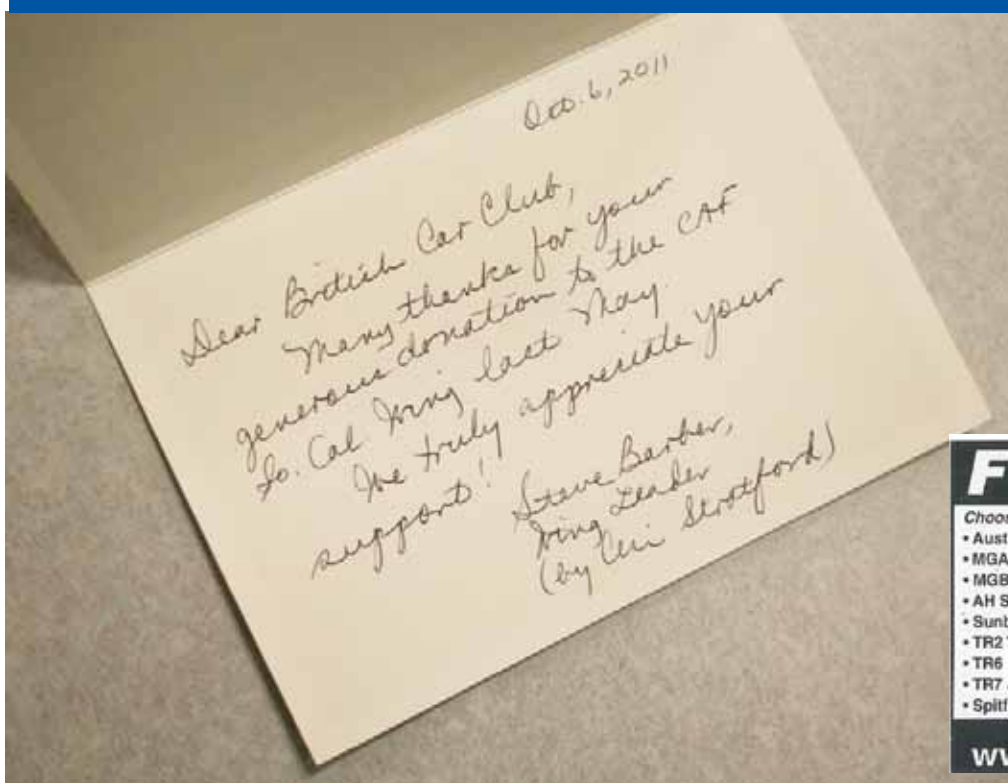 Oct. 6, 2011
Dear British Car Club,
Many thanks for your
generous donation to the CAF
So. Cal Wing last May.
We truly appreciate your
support!
Steve Barber,
Wing Leader
(by Ceri Stratford)
F
Choo
• Aust
• MGA
• MGB
• AH S
• Sunb
• TR2
• TR6
• TR7
• Spitf